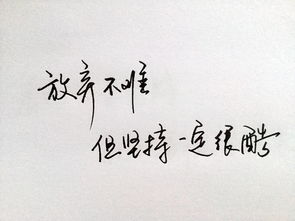 放弃不难
但坚持一定很酷